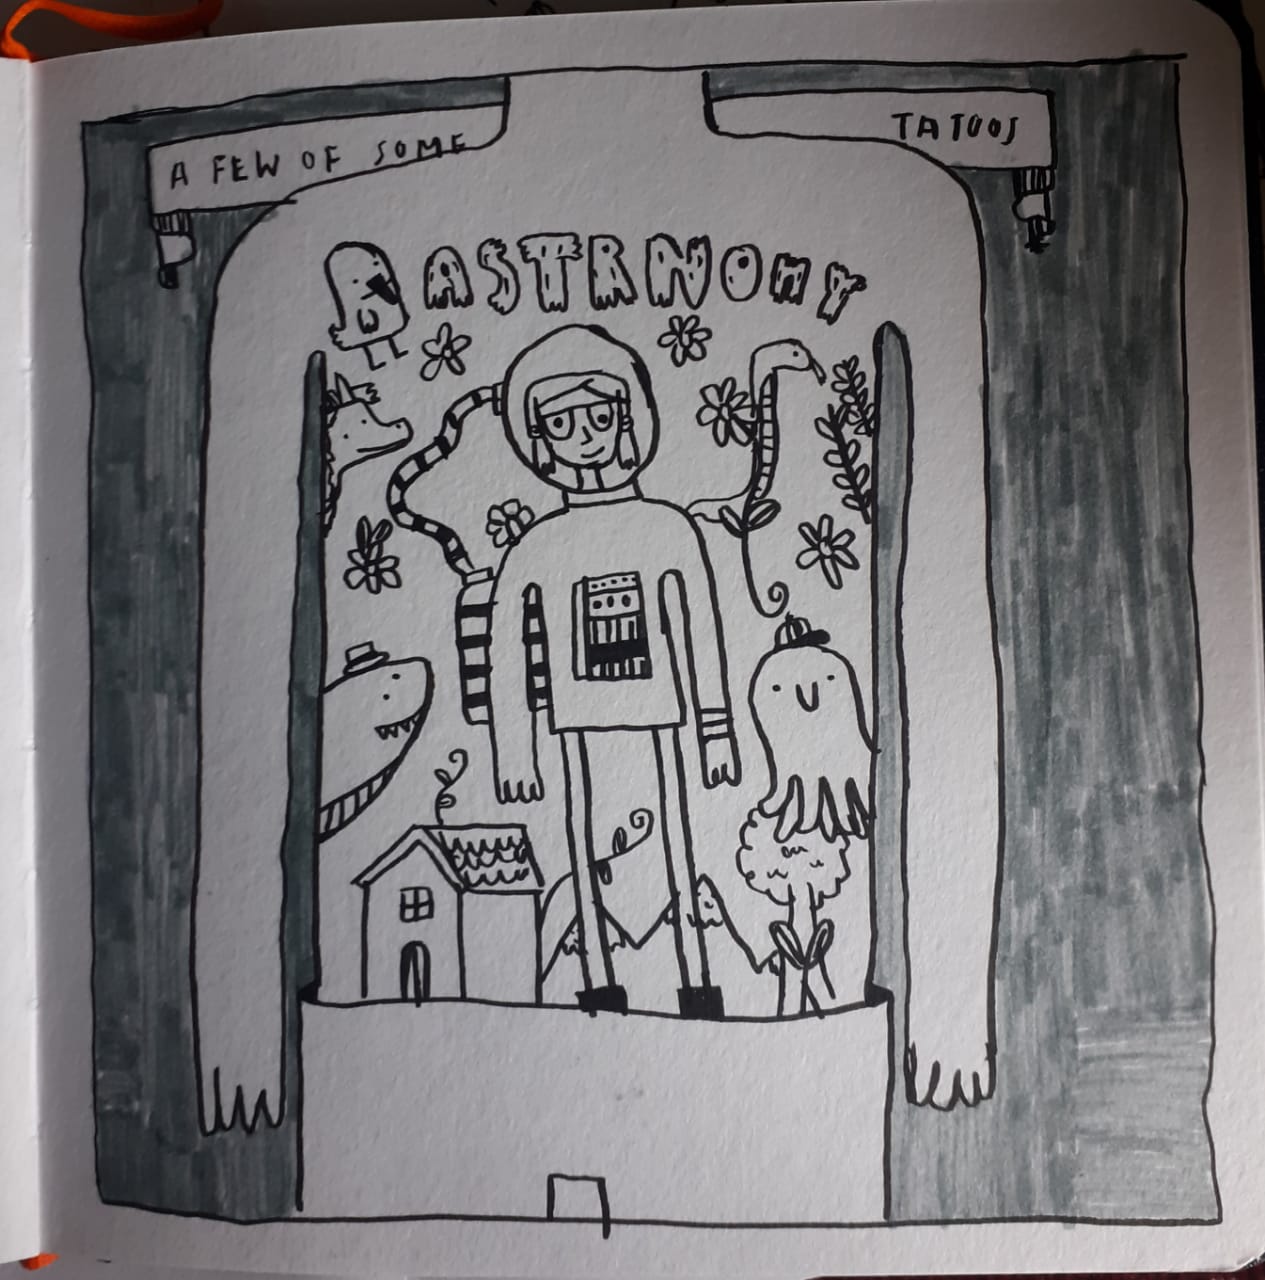 A FEW OF SOME
TATOOS
ASTRNOMY